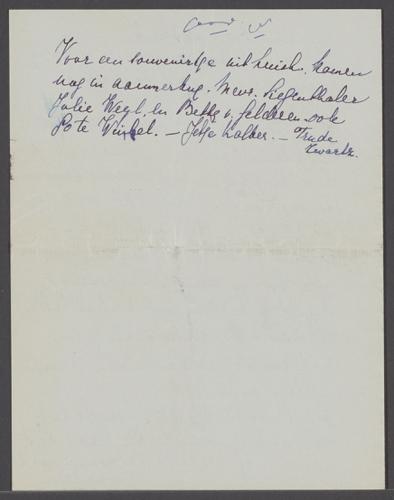 Voor een souveniertje uit huis komen
nog in aanmerking. Mevr. Liegenthaler
Julie Weyl, en Betty v. Gelderen ook
Pote Winkel. — Jetje Kolker. — Trude
Kwartz.